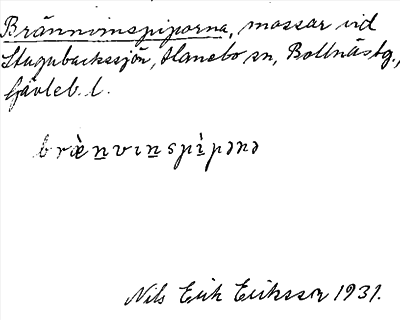 Brännvinspiporna, mossar vid
Stugubackssjön, Hanebo sn, Bollnästg.,
Gävleb. l.
bræ̀nvinspìpəɳə
Nils Erik Eriksson 1931.